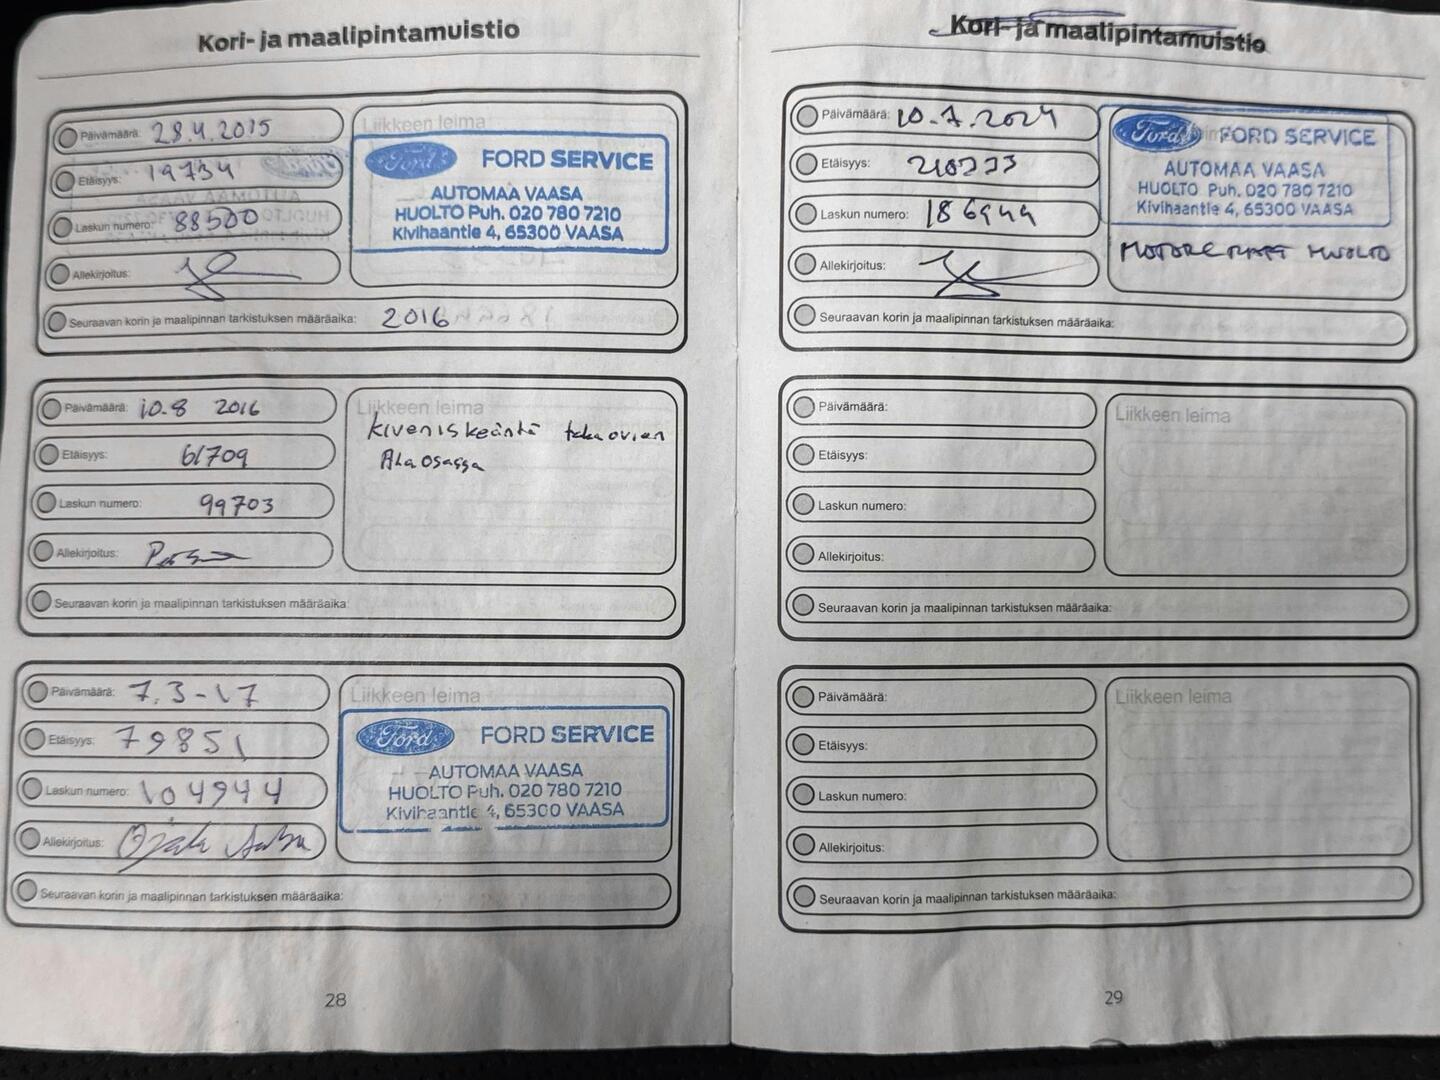 Kori- ja maalipintamuistio
Päivämäärä: 28.4.2015
Etäisyys: 19734
Laskun numero: 88500
Allekirjoitus:
Liikkeen leima
Ford FORD SERVICE
AUTOMAA VAASA
HUOLTO Puh. 020 780 7210
Kivihaantie 4, 65300 VAASA
Seuraavan korin ja maalipinnan tarkistuksen määräaika: 2016
Päivämäärä: 10.8 2016
Etäisyys: 61709
Laskun numero: 99703
Allekirjoitus:
Liikkeen leima
Kiveniskeäntä takaovien
Alaosassa
Seuraavan korin ja maalipinnan tarkistuksen määräaika:
Päivämäärä: 7.3-17
Etäisyys: 79851
Laskun numero: 104944
Allekirjoitus:
Liikkeen leima
Ford FORD SERVICE
AUTOMAA VAASA
HUOLTO Puh. 020 780 7210
Kivihaantie 4, 65300 VAASA
Seuraavan korin ja maalipinnan tarkistuksen määräaika:
28
Kori- ja maalipintamuistio
Päivämäärä: 10.7.2024
Etäisyys:
Laskun numero: 186944
Allekirjoitus:
Ford FORD SERVICE
AUTOMAA VAASA
HUOLTO Puh. 020 780 7210
Kivihaantie 4, 65300 VAASA
MOTORCRAFT HUOLTO
Seuraavan korin ja maalipinnan tarkistuksen määräaika:
Päivämäärä:
Etäisyys:
Laskun numero:
Allekirjoitus:
Liikkeen leima
Seuraavan korin ja maalipinnan tarkistuksen määräaika:
Päivämäärä:
Etäisyys:
Laskun numero:
Allekirjoitus:
Liikkeen leima
Seuraavan korin ja maalipinnan tarkistuksen määräaika:
29